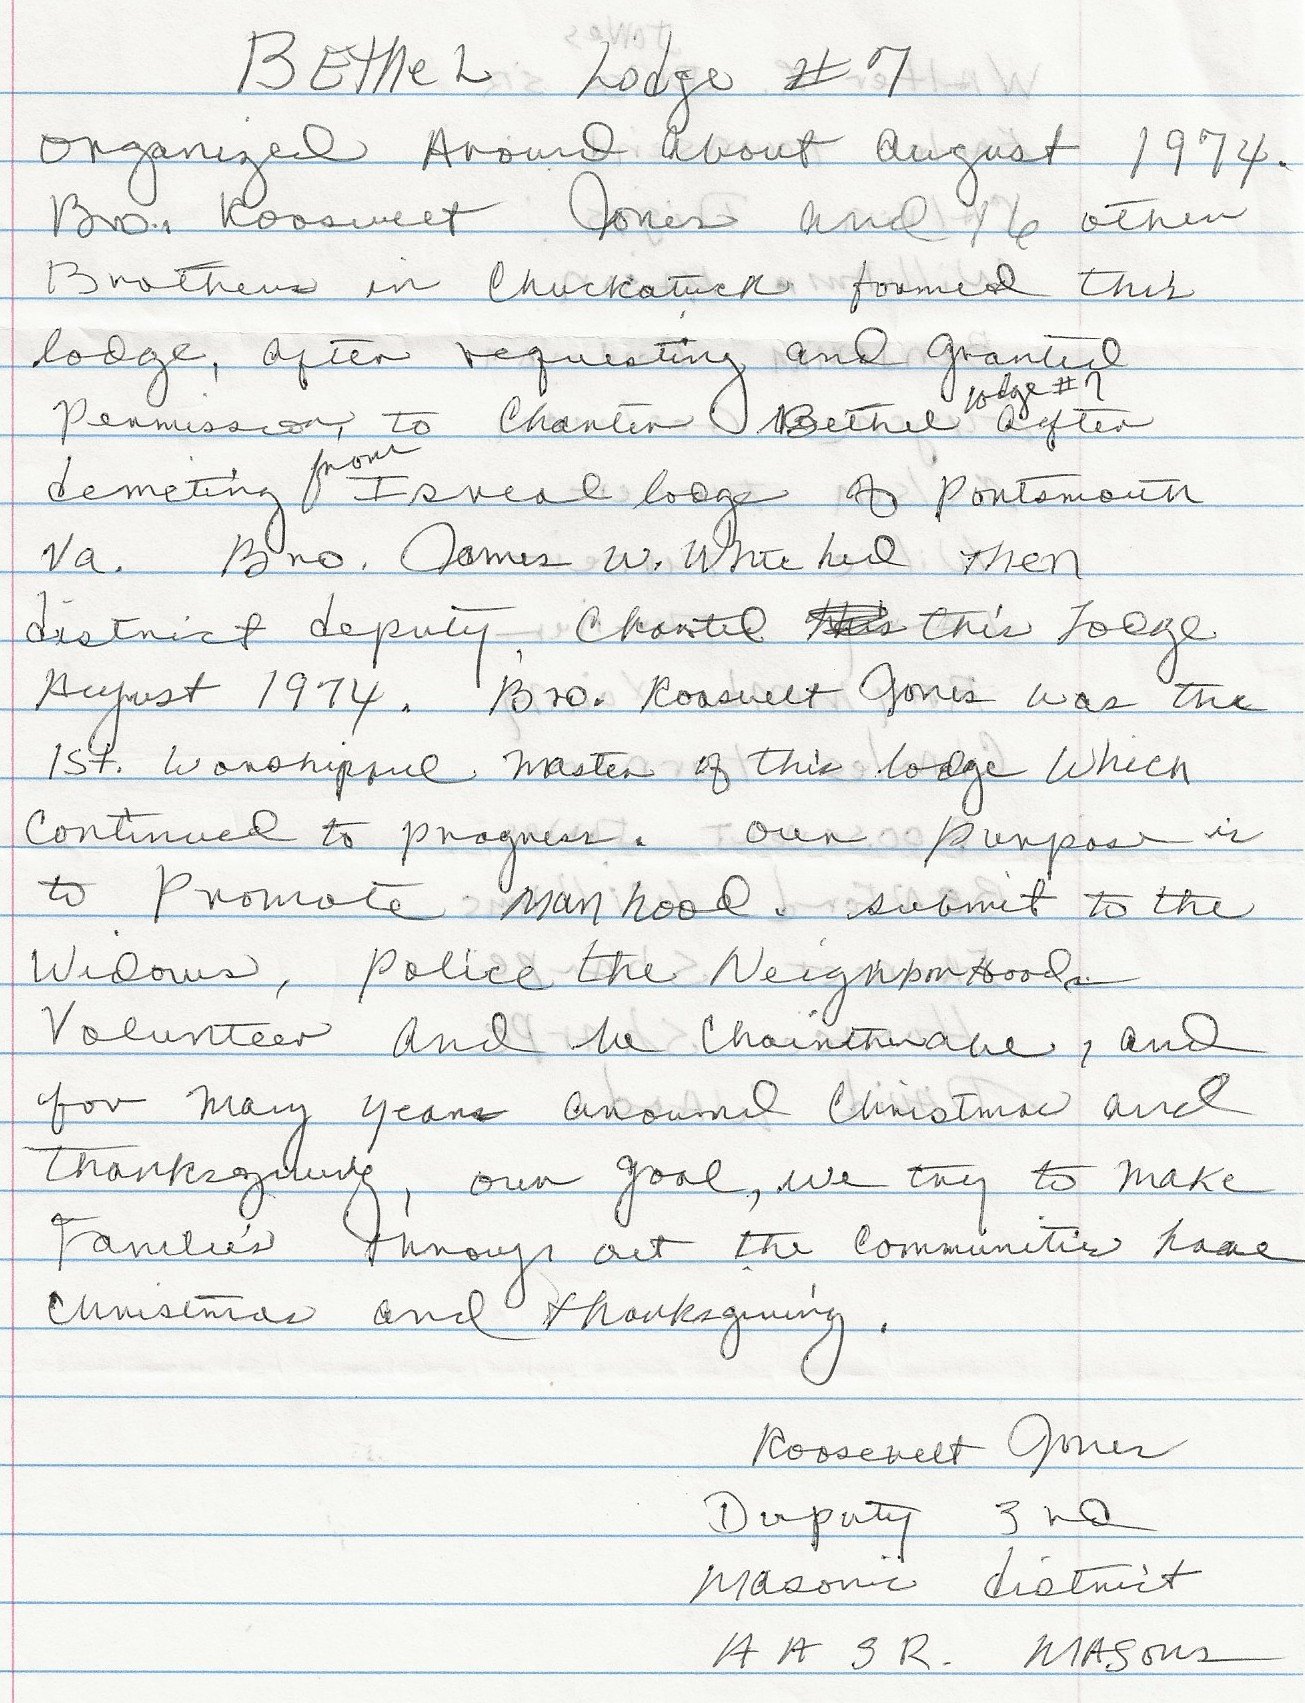 BETHEL Lodge #7
organized Around about august 1974.
Bro. Roosvelt Jones and 16 other
Brothers in Chuckatuck formed this
lodge, after requesting and granted
Permission, to Charter Bethel lodge #7 after
demeting from Isreal lodge of Portsmouth
Va. Bro. James W. Whitehed then
district deputy, Charted this Lodge
August 1974. Bro. Roosvelt Jones was the
1st. Worshipful Master of this lodge Which
Continued to progress. our purpose is
to Promote Manhood. submit to the
Widows, Police the Neighborhoods
Volunteer and be , and
for many years around Christmas and
thanksgiving, our goal, we try to make
Families through out the communities have
christmas and thanksgiving.
Roosevelt Jones
Deputy 3rd
Masonic district
A A S R. MASONS